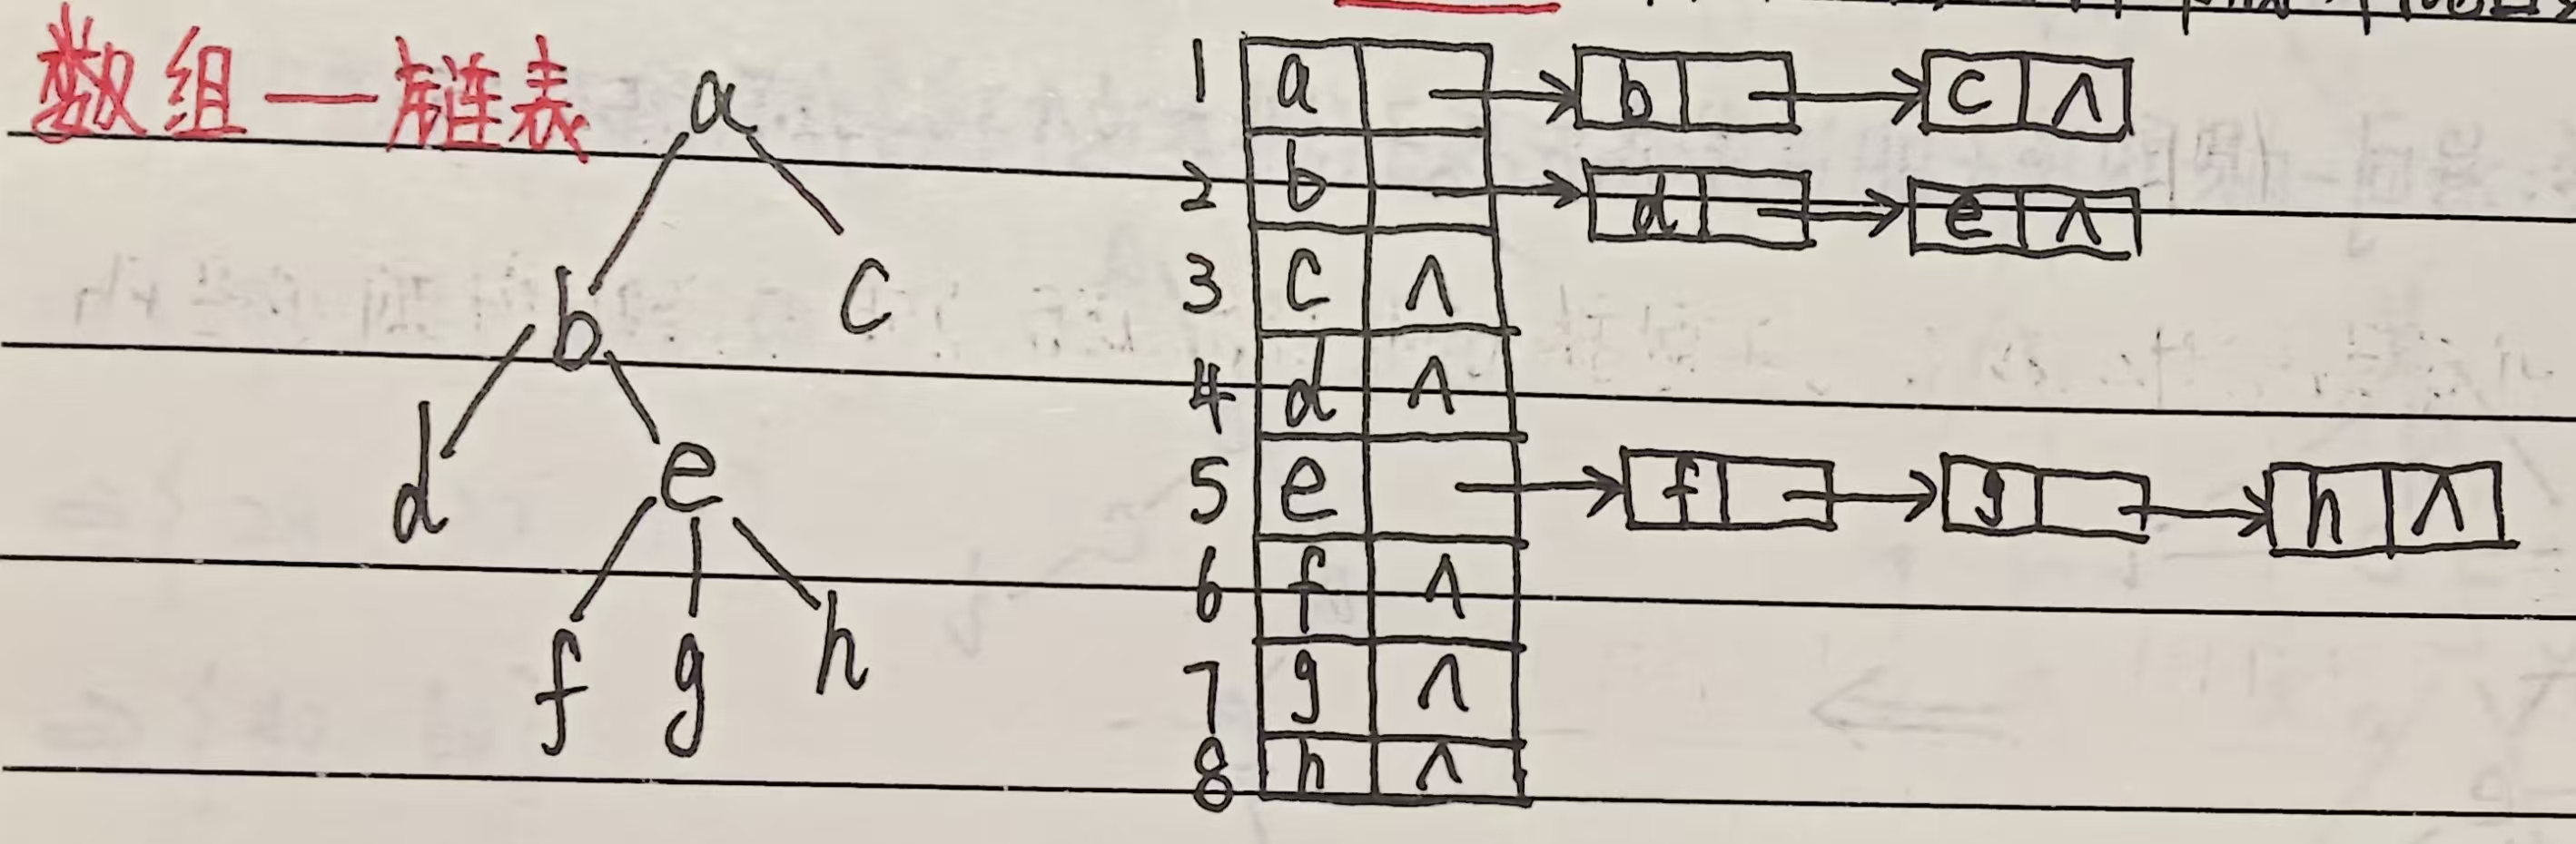 数组—链表
a
b c
d e
f g h
1 a → b → c ∧
2 b → d → e ∧
3 c ∧
4 d ∧
5 e → f → g → h ∧
6 f ∧
7 g ∧
8 h ∧